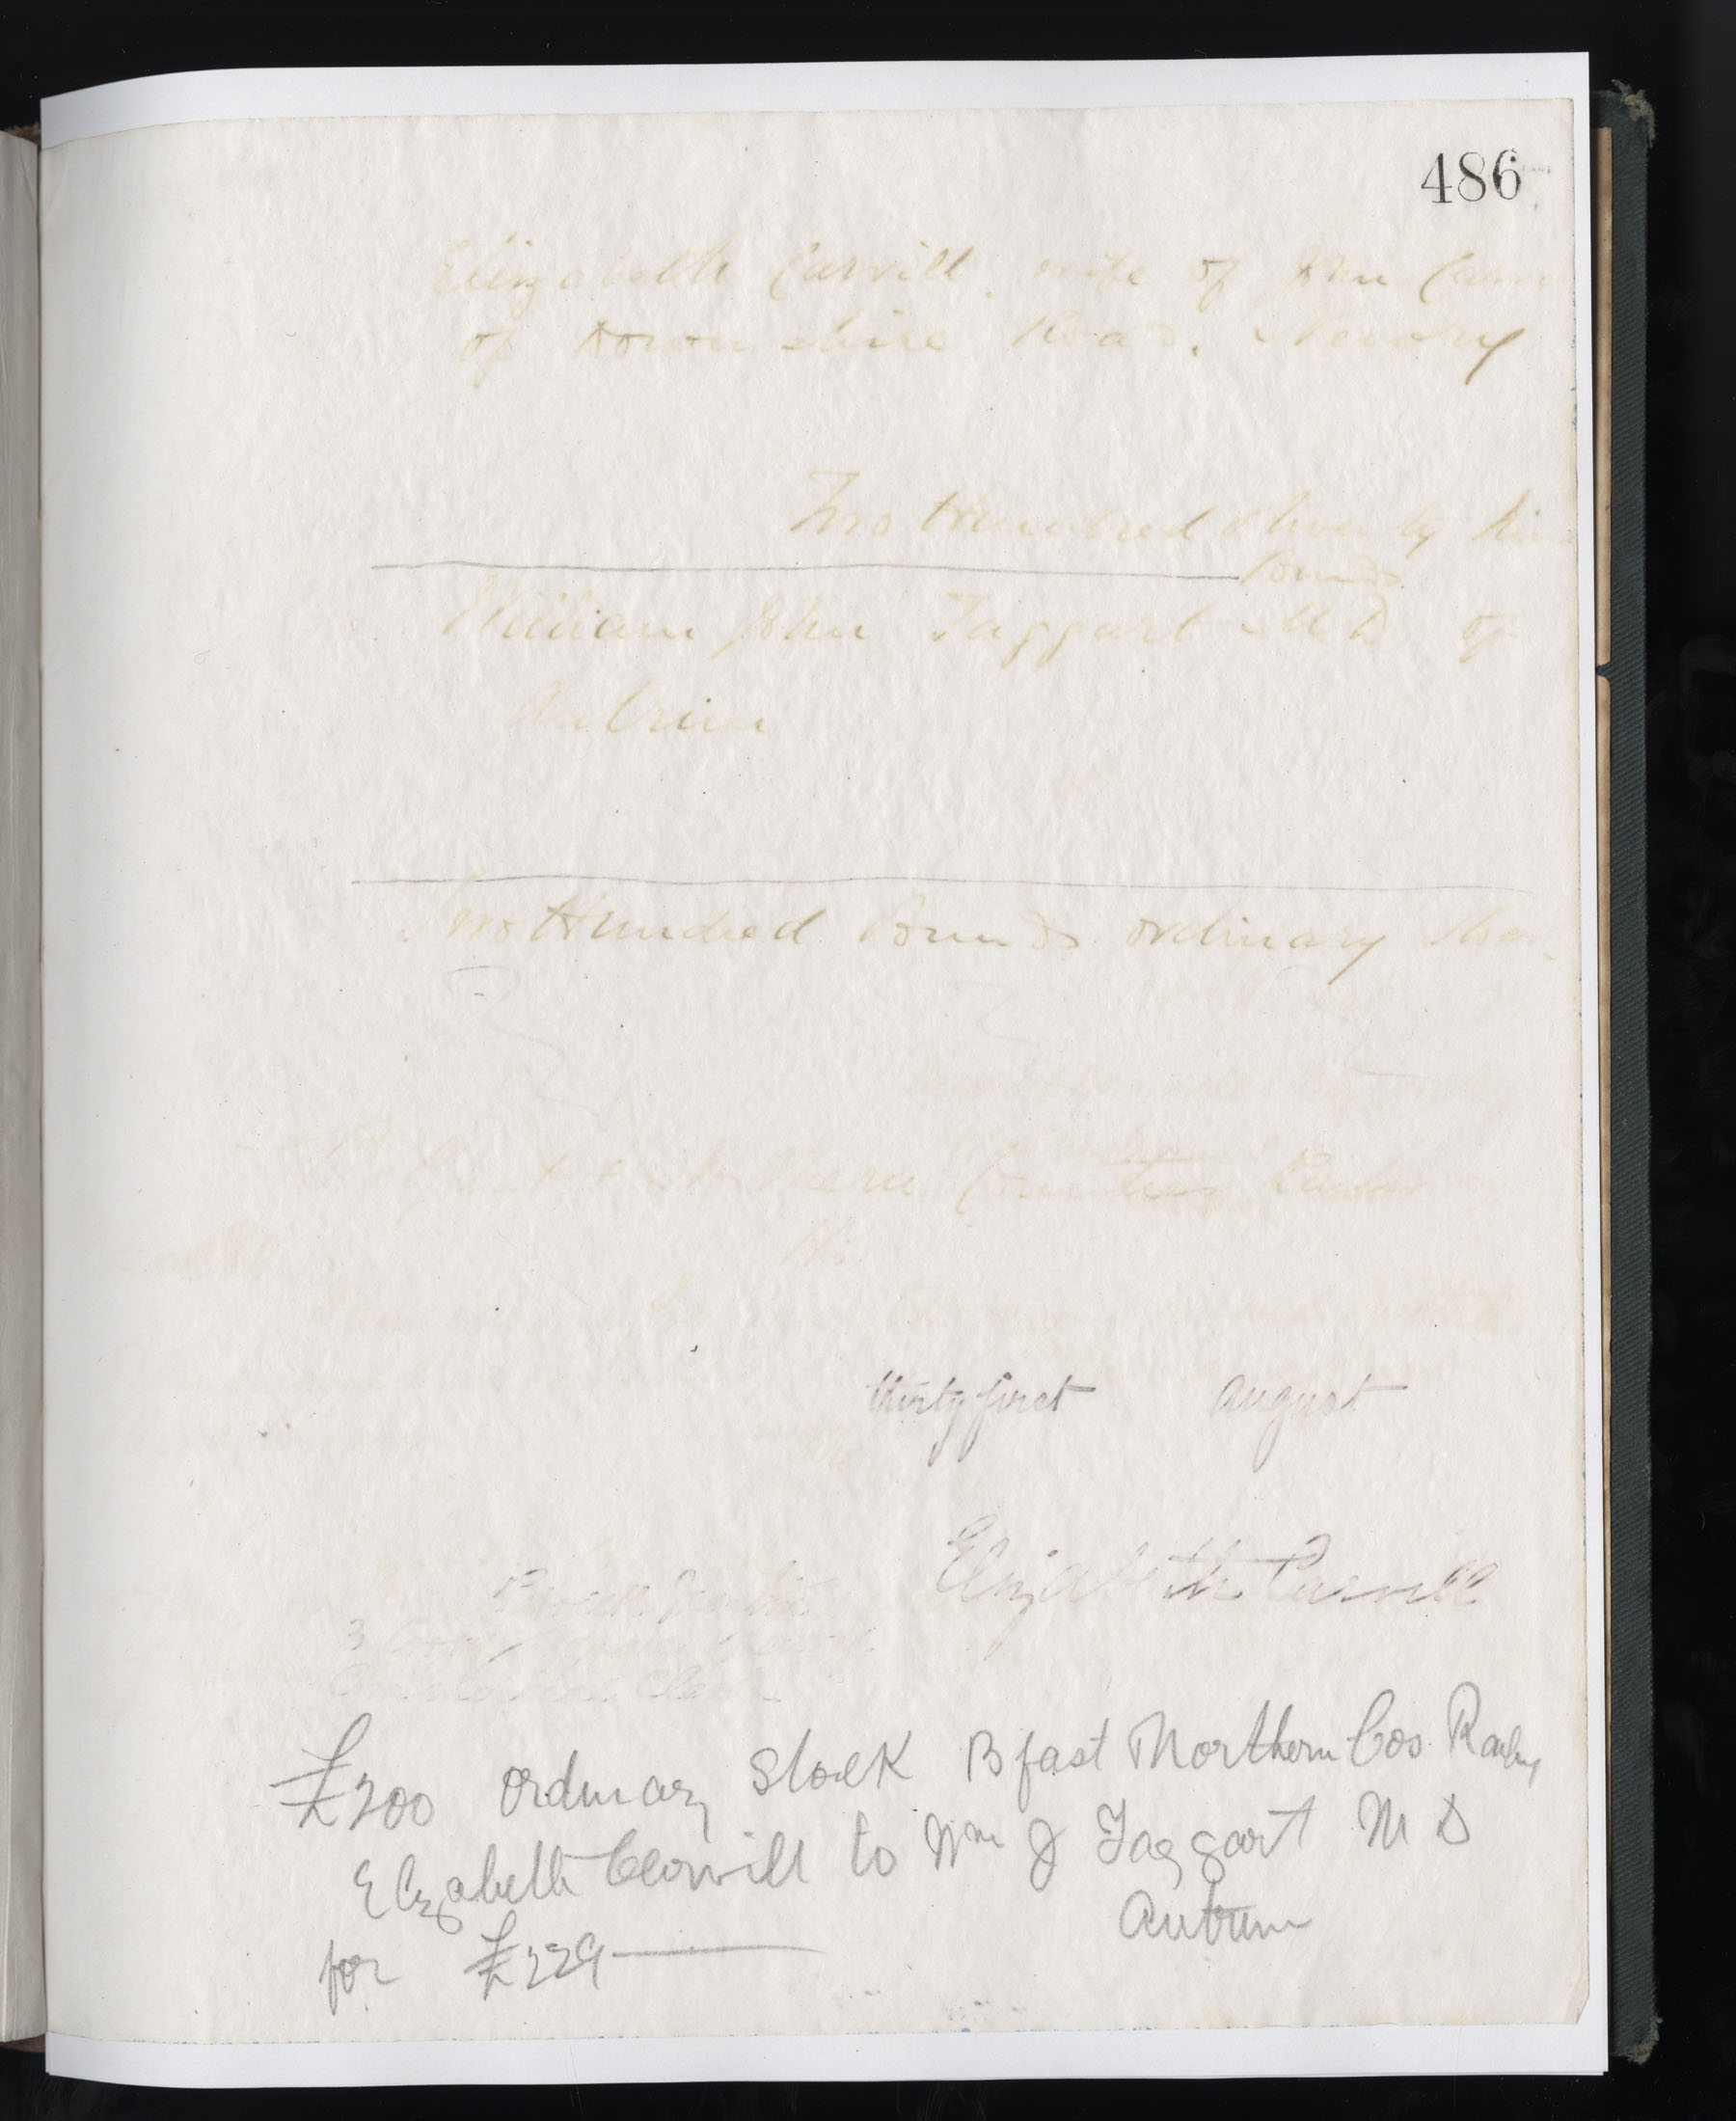 486
Elizabeth Carvill, wife of John
of Downshire Road, Newry
Two Hundred & twenty
Pounds
William John Taggart M D of
Antrim
Two Hundred Pounds ordinary
Northern Counties
thirty first August
Elizabeth Carvill
3
£200 ordinary Stock Bfast Northern Cos Railwy
Elizabeth Carvill to Wm J Taggart M D
Antrim
for £229